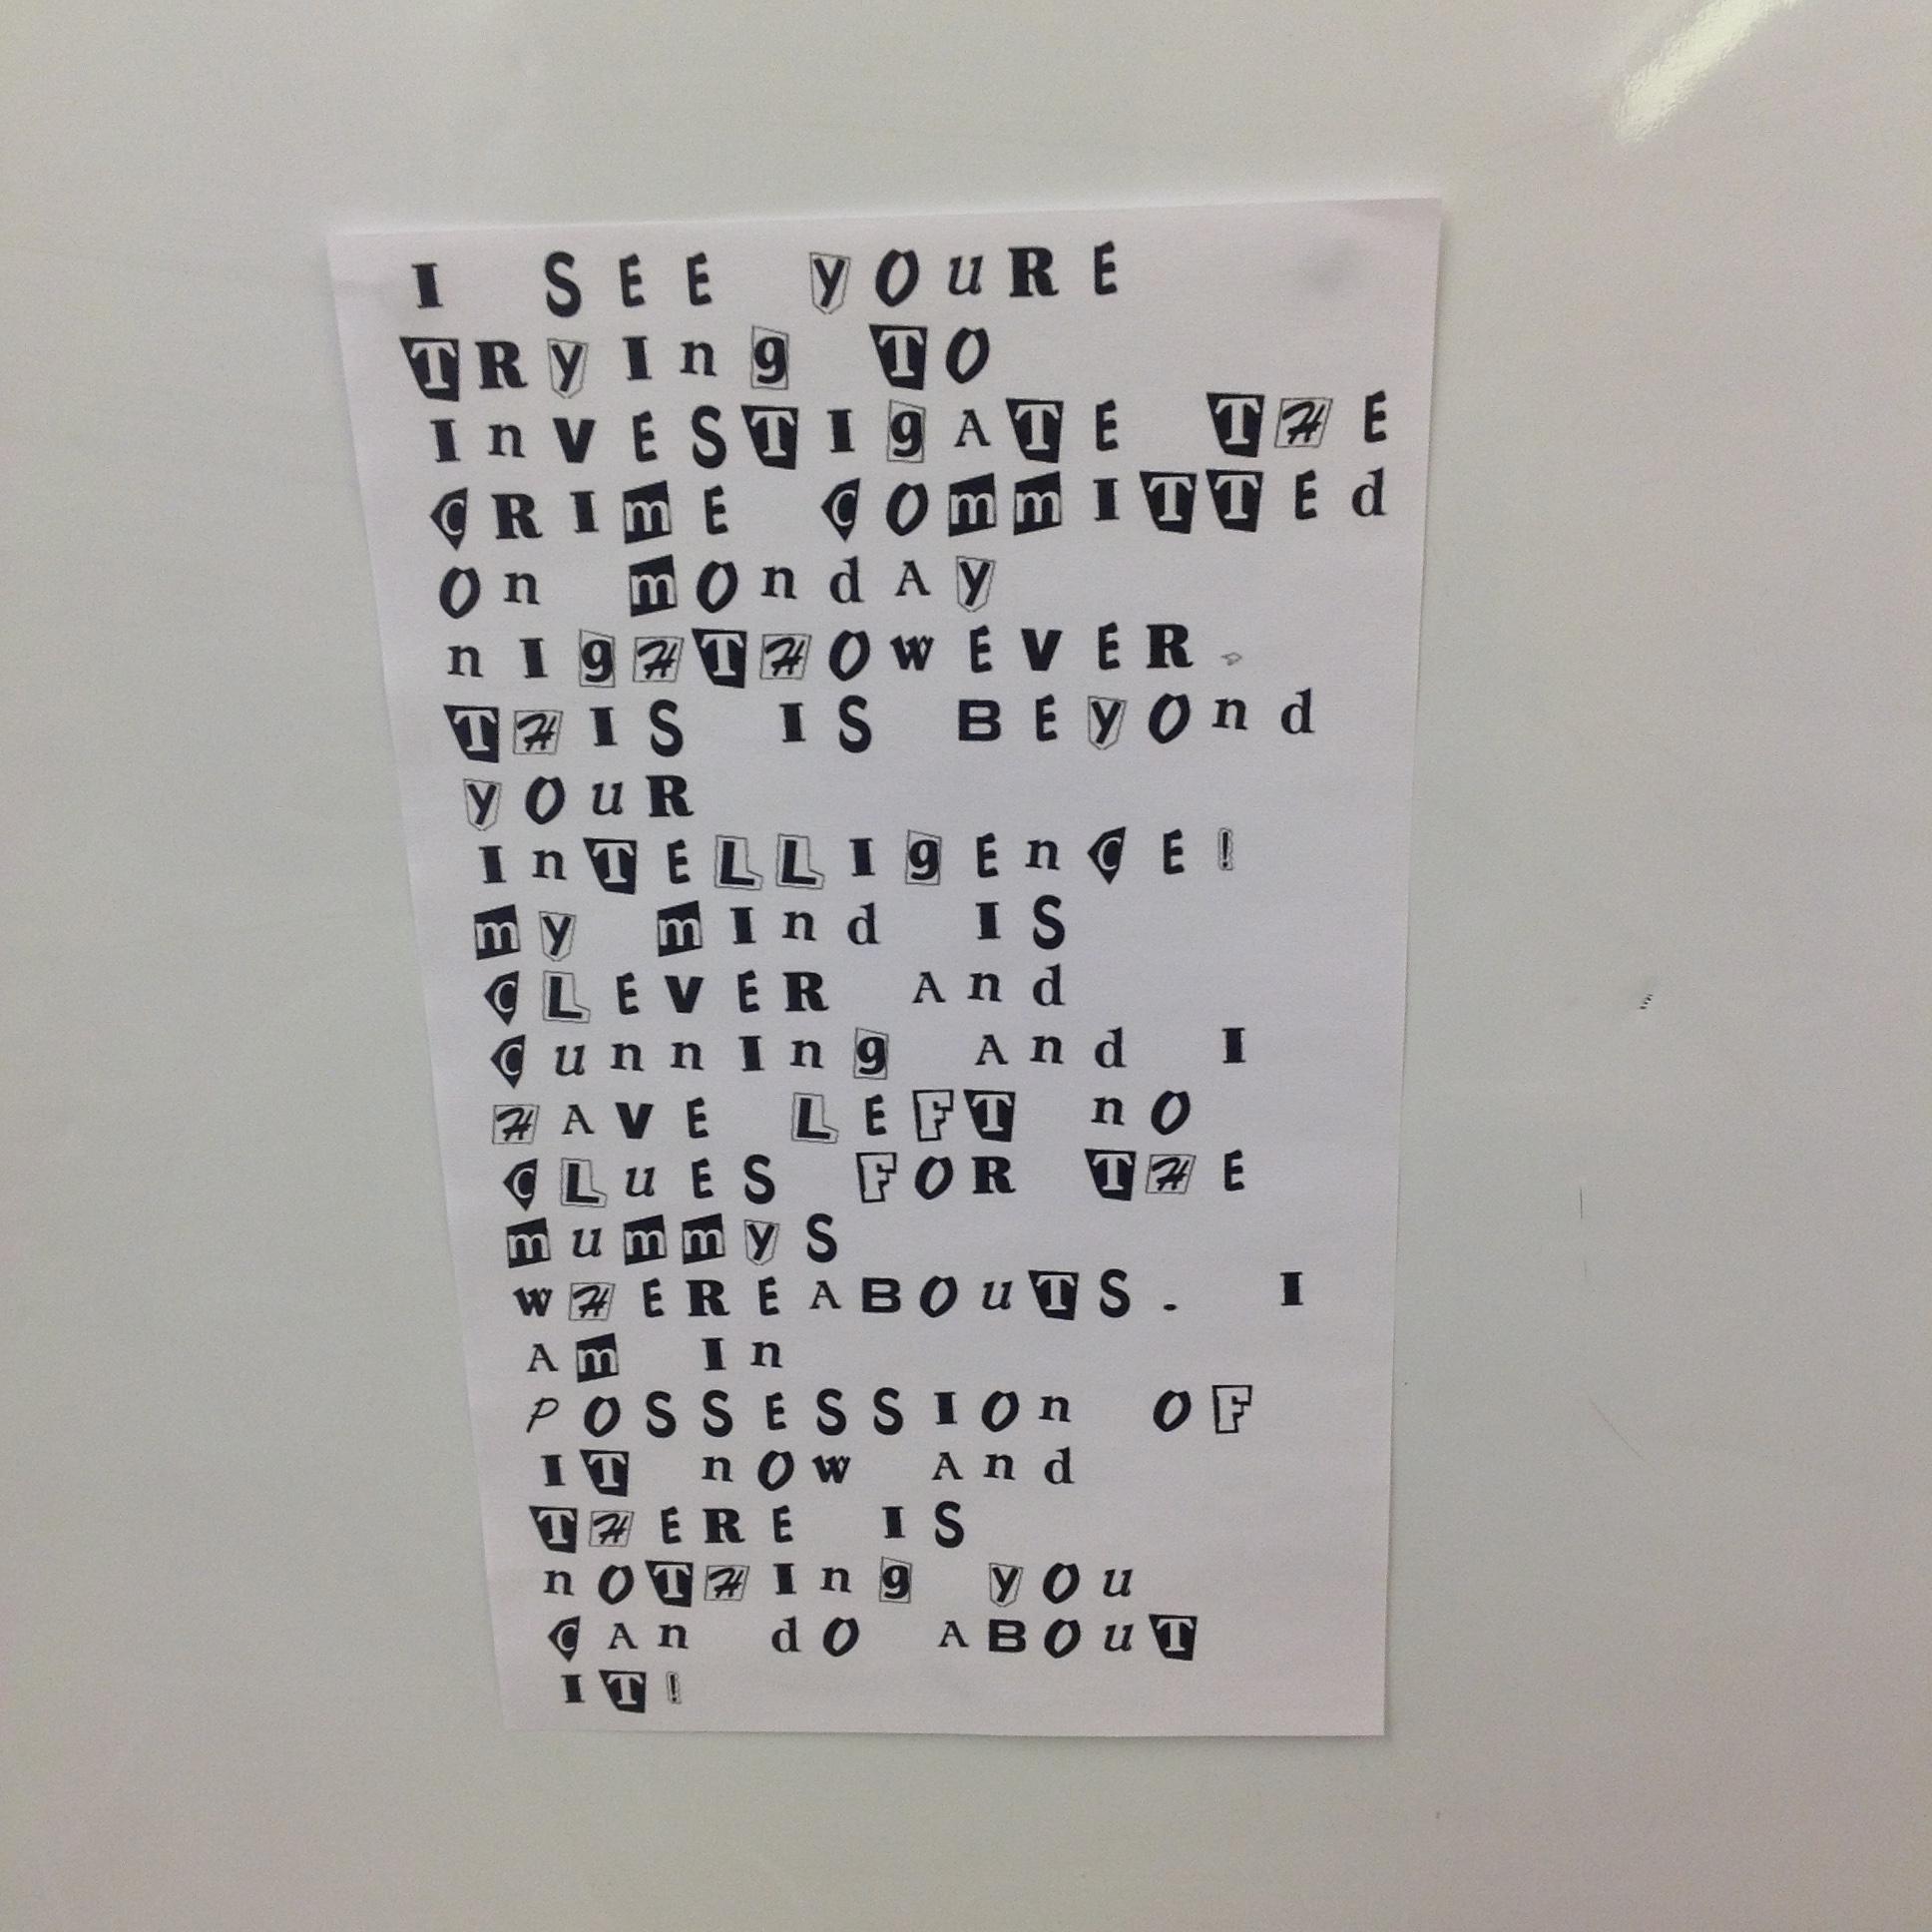 I SEE yOuRE
TRyIng TO
InVESTIgATE THE
CRImE COmmITTEd
On mOndAy
nIgHTHOwEVER,
THIS IS BEyOnd
yOuR
InTELLIgEnCE!
my mInd IS
CLEVER And
CunnIng And I
HAVE LEFT nO
CLuES FOR THE
mummyS
wHEREABOuTS. I
Am In
POSSESSIOn OF
IT nOw And
THERE IS
nOTHIng yOu
CAn dO ABOuT
IT!